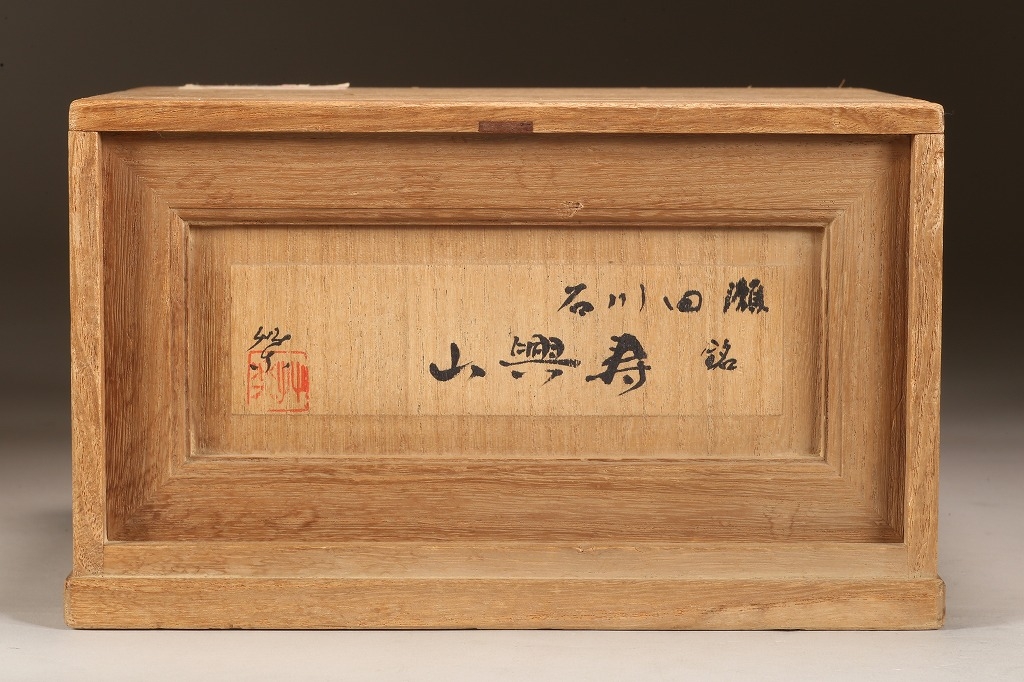 瀬田川石
銘 寿興山